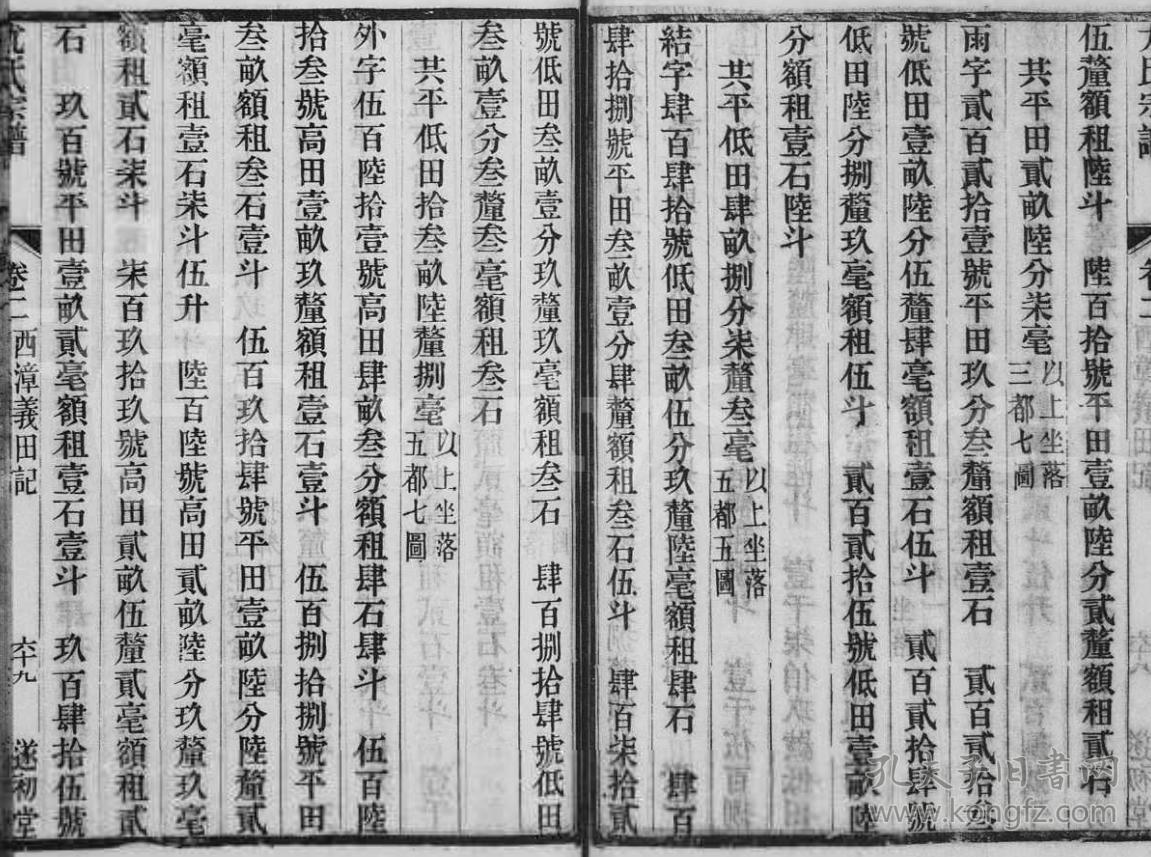 伍釐額租陸斗　陸百拾號平田壹畝陸分貳釐額租貳石
共平田貳畝陸分柒毫以上坐落三都七圖
雨字貳百貳拾壹號平田玖分叁釐額租壹石　貳百貳拾叁
號低田壹畝陸分伍釐肆毫額租壹石伍斗　貳百貳拾肆號
低田陸分捌釐玖毫額租伍斗　貳百貳拾伍號低田壹畝陸
分額租壹石陸斗
共平低田肆畝捌分柒釐叁毫以上坐落五都五圖
結字肆百肆拾號低田叁畝伍分玖釐陸毫額租肆石　肆百
肆拾捌號平田叁畝壹分肆釐額租叁石伍斗　肆百柒拾貳
號低田叁畝壹分玖釐玖毫額租叁石　肆百捌拾肆號低田
叁畝壹分叁釐叁毫額租叁石
共平低田拾叁畝陸釐捌毫以上坐落五都七圖
外字伍百陸拾壹號高田肆畝叁分額租肆石肆斗　伍百陸
拾叁號高田壹畝玖釐額租壹石壹斗　伍百捌拾捌號平田
叁畝額租叁石壹斗　伍百玖拾肆號平田壹畝陸分陸釐貳
毫額租壹石柒斗伍升　陸百陸號高田貳畝陸分玖釐玖毫
額租貳石柒斗　柒百玖拾玖號高田貳畝伍釐貳毫額租貳
石　玖百號平田壹畝貳毫額租壹石壹斗　玖百肆拾伍號
氏宗譜　卷二　西漳義田記　六十九　遂初堂
孔夫子旧书网
www.kongfz.com